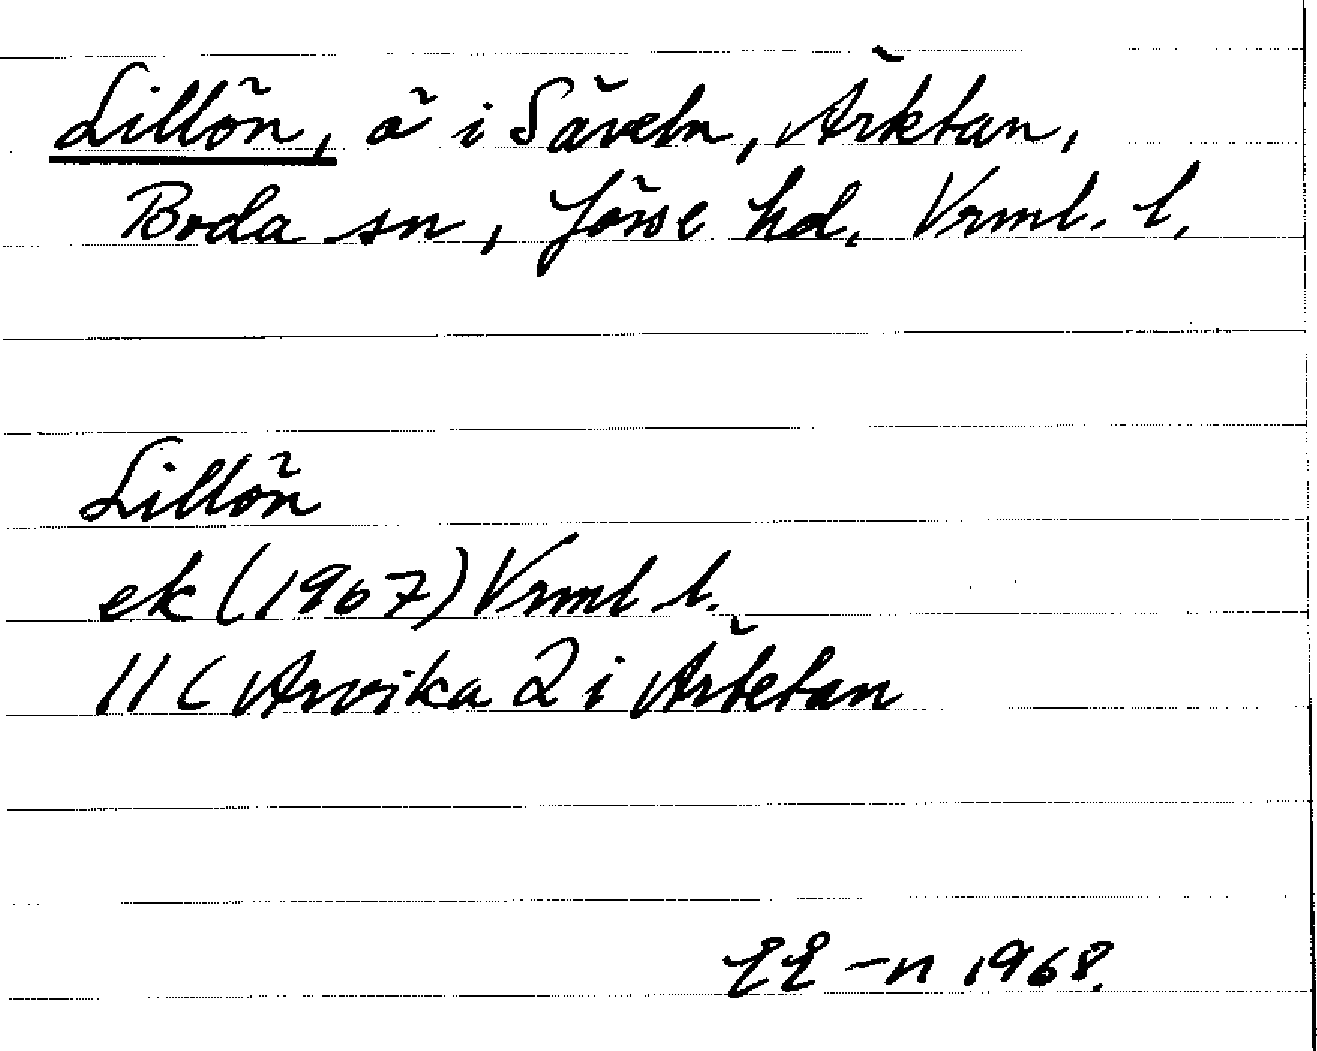 Lillön, ö i Säveln, Ärktan,
Boda sn, Jösse hd, Vrml. l.
Lillön
ek (1967) Vrml l.
11C Arvika 2 i Ärtetan
EE-n 1968.